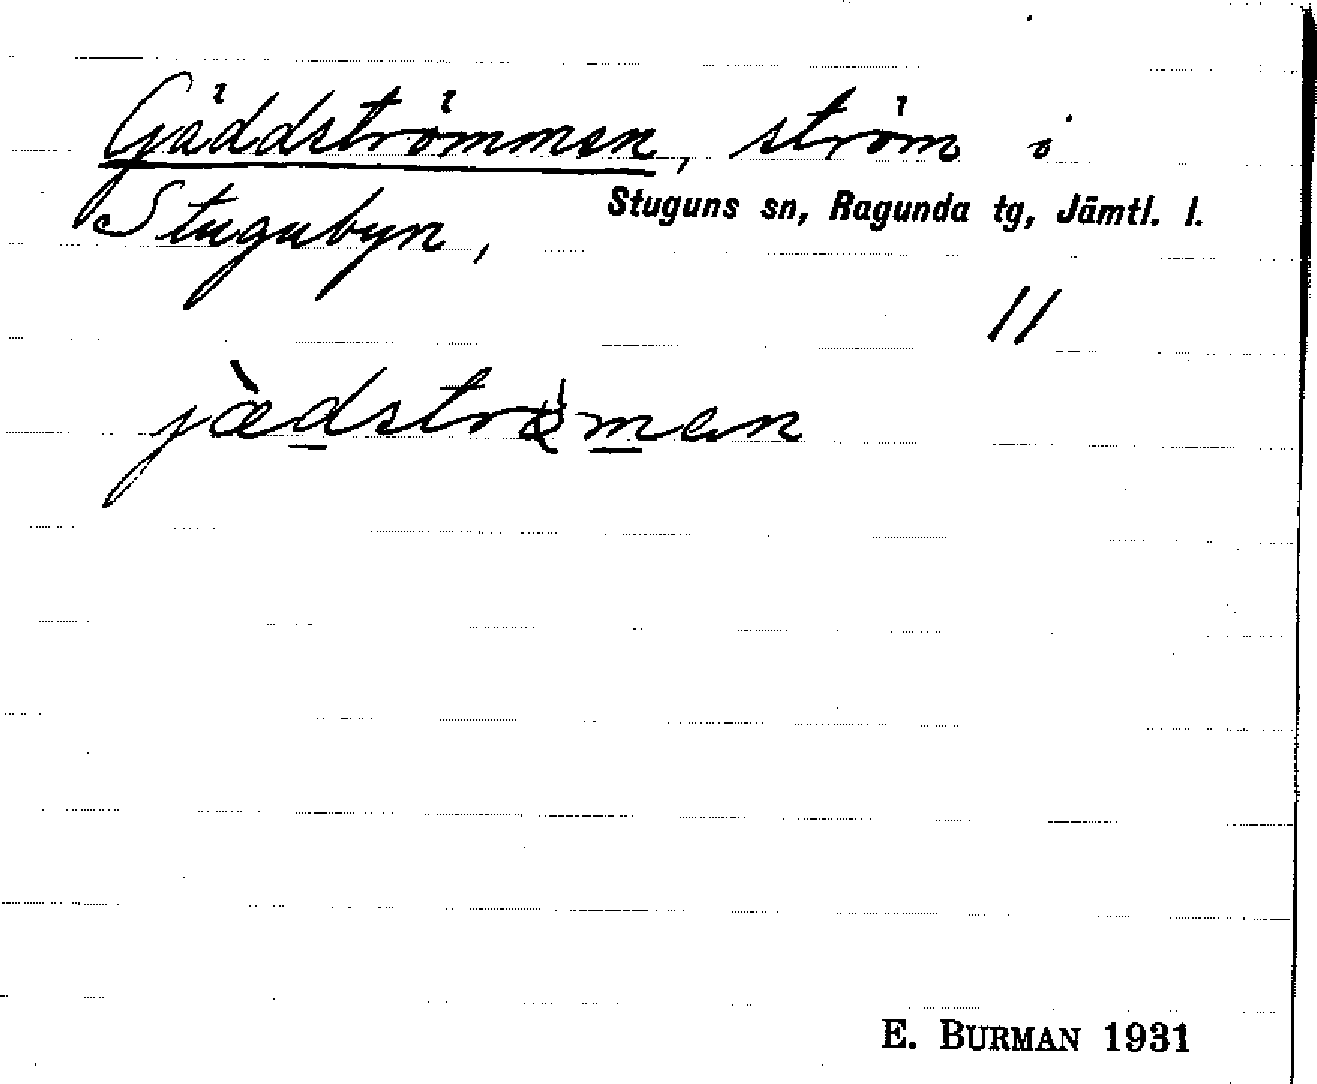 Gäddströmmen, ström i
Stugubyn, Stuguns sn, Ragunda tg, Jämtl. l.
11
jæ̀dströ̀men
E. BURMAN 1931